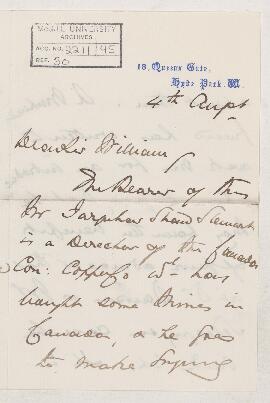 McGILL UNIVERSITY
ARCHIVES
ACC. NO. 2211/45
REF. 50
18, Queens Gate,
Hyde Park. W.
4th Augst
Dear Sir William
The Bearer of this
Mr Farquhar Shand Stewart
is a Director of the Canada
Con: Copper Co wh have
bought some Mines in
Canada, & he goes
to make